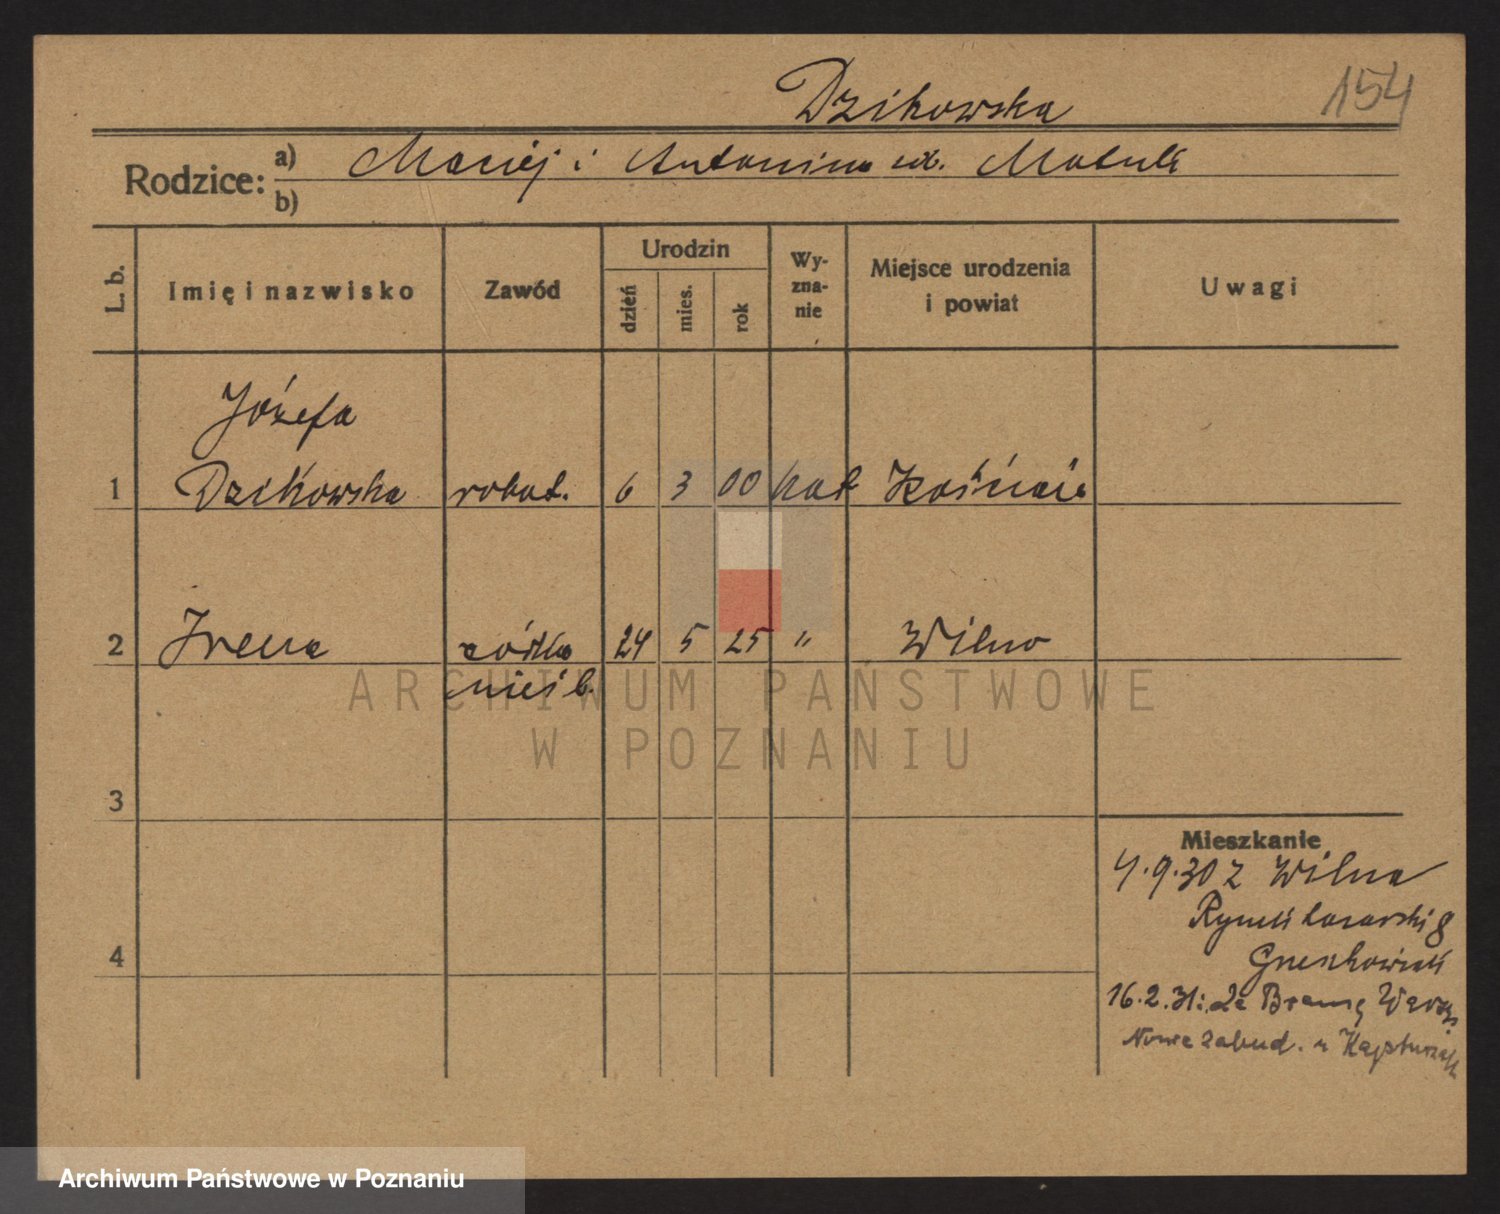 Dzikowska
154
Rodzice: a) Maciej i Antonina
b)
L. b. Imię i nazwisko Zawód Urodzin dzień mies. rok Wyznanie Miejsce urodzenia i powiat Uwagi
Józefa
1 Dzikowska robot. 6 3 00 kat
2 Irena córka 24 5 25 " Wilno
nieśl.
ARCHIWUM PAŃSTWOWE
W POZNANIU
3
Mieszkanie
4.9.30 z Wilna
Rynek Łazarski 8
4
16.2.31: Za Bramę
Nowe zabud.
Archiwum Państwowe w Poznaniu